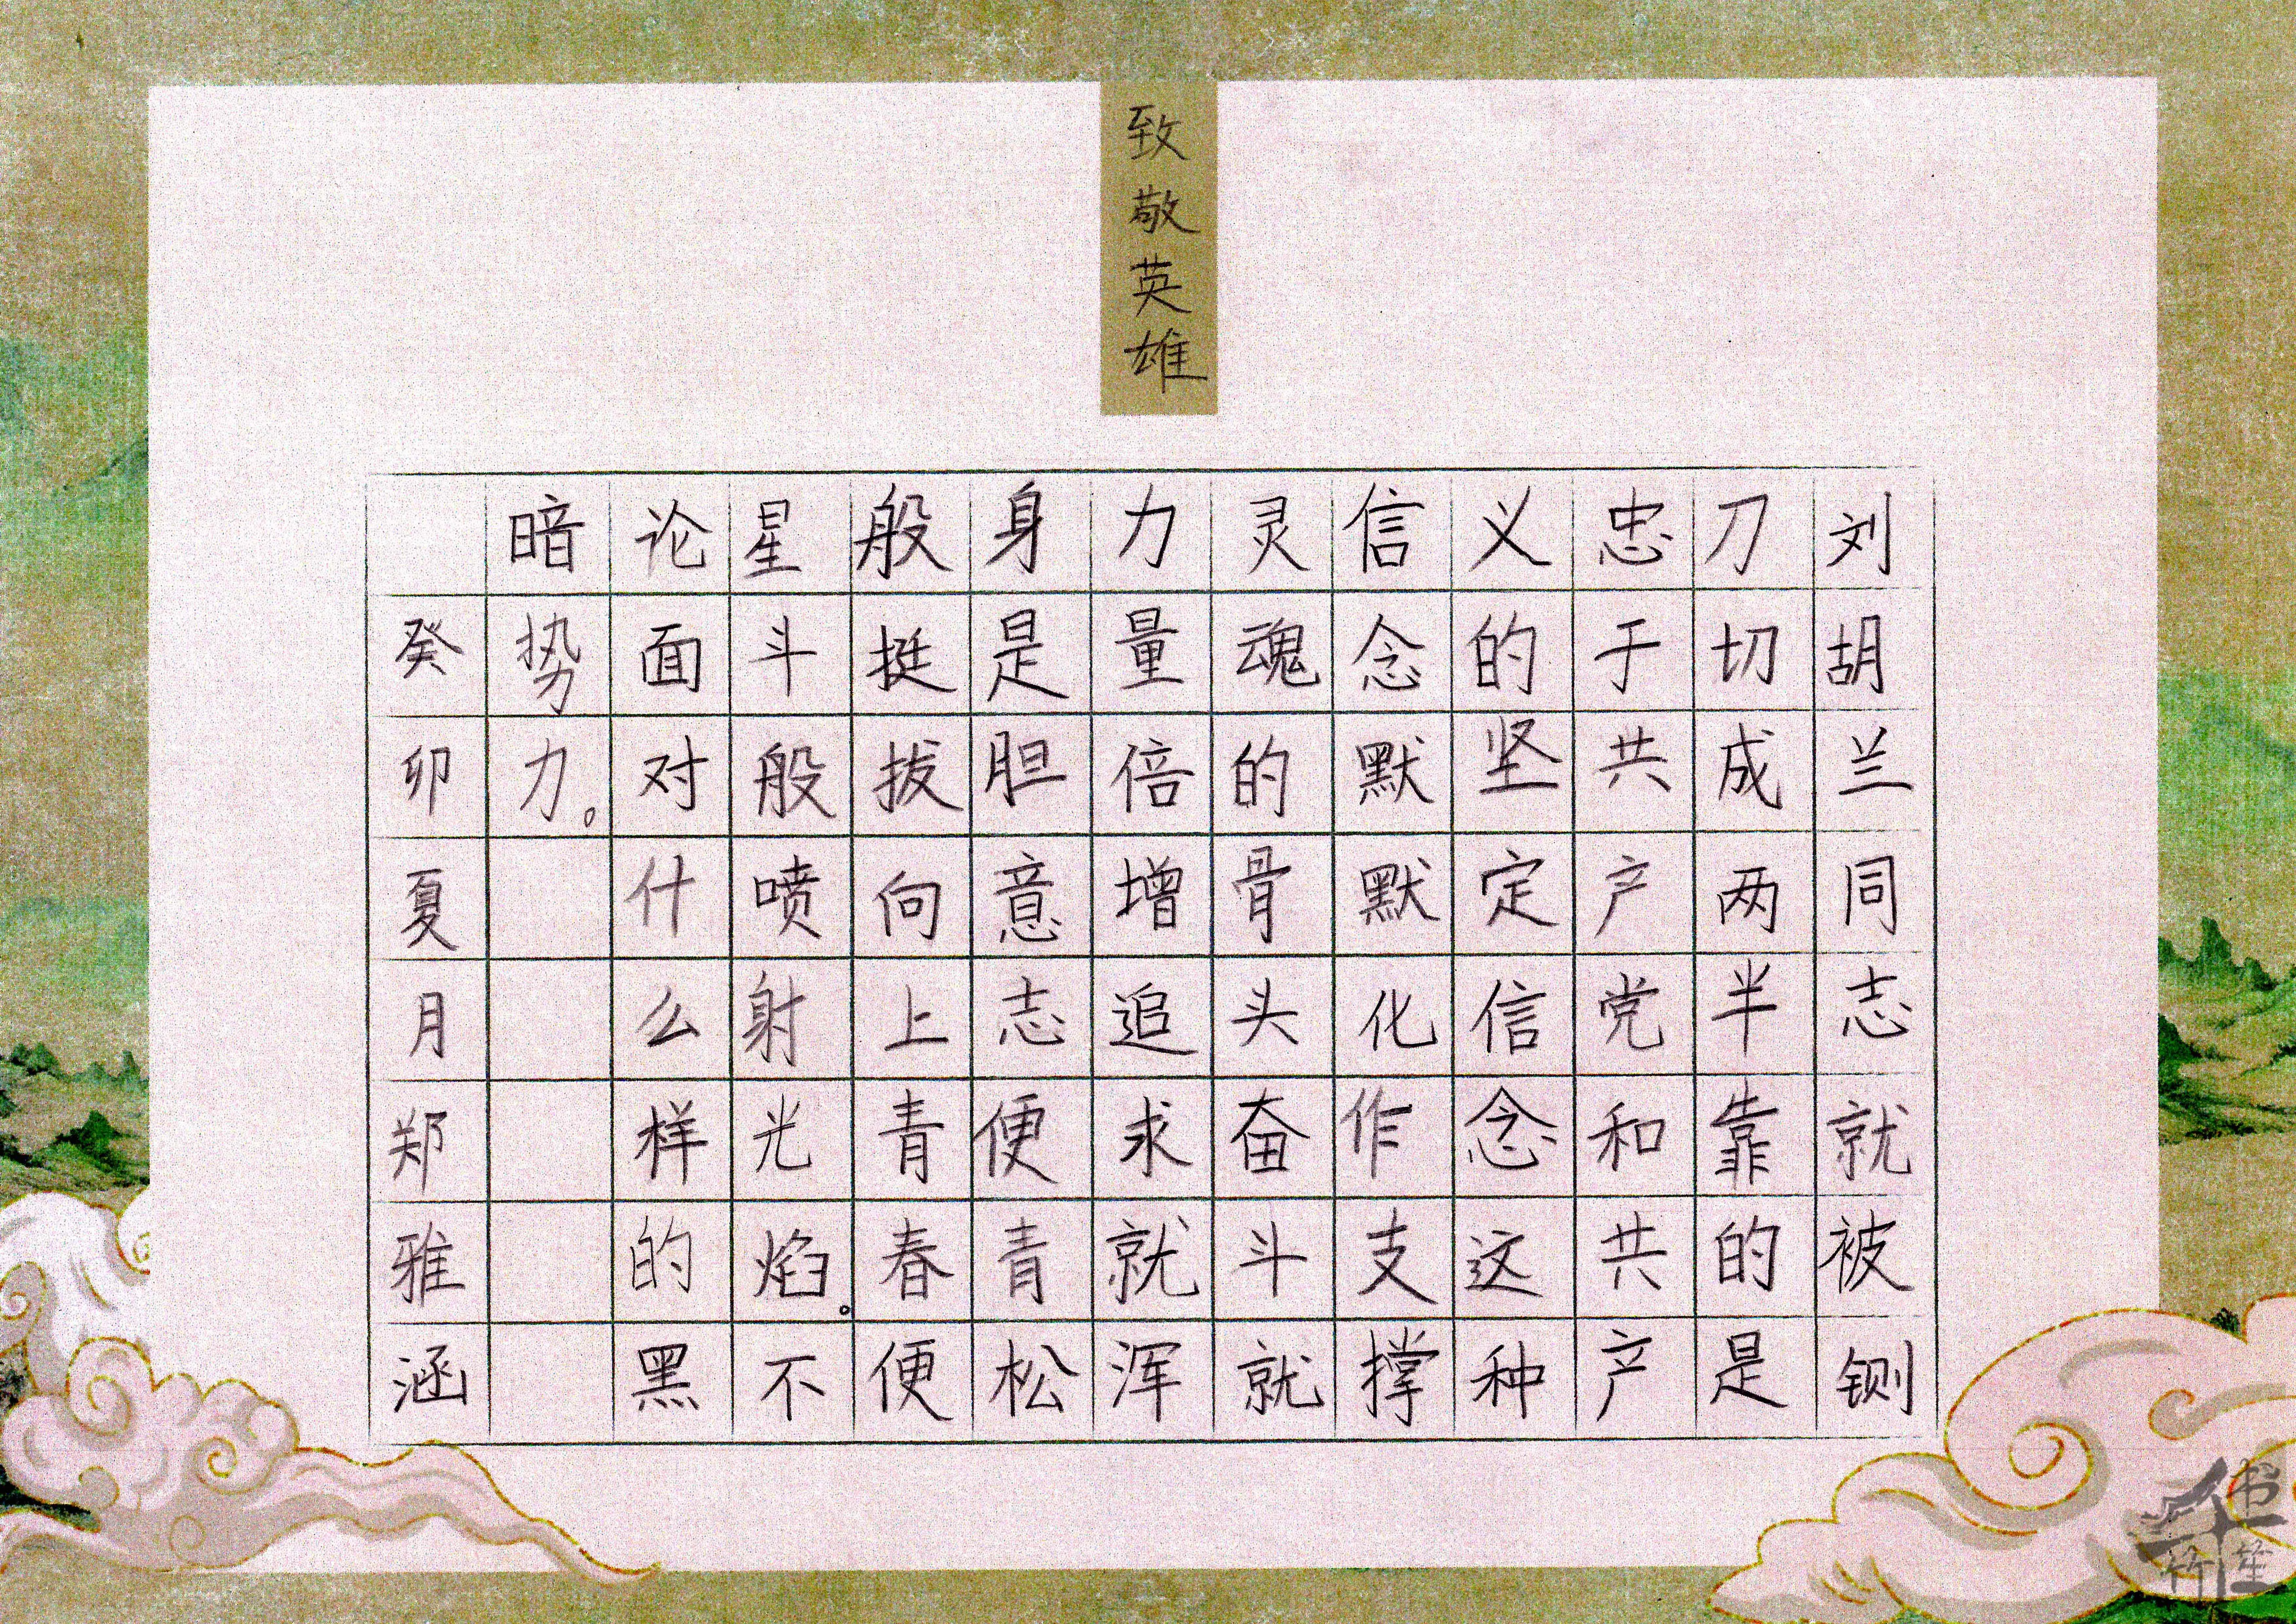 致敬英雄
刘胡兰同志就被铡
刀切成两半靠的是
忠于共产党和共产
义的坚定信念这种
信念默默化作支撑
灵魂的骨头奋斗就
力量倍增追求就浑
身是胆意志便青松
般挺拔向上青春便
星斗般喷射光焰。不
论面对什么样的黑
暗势力。
癸卯夏月郑雅涵